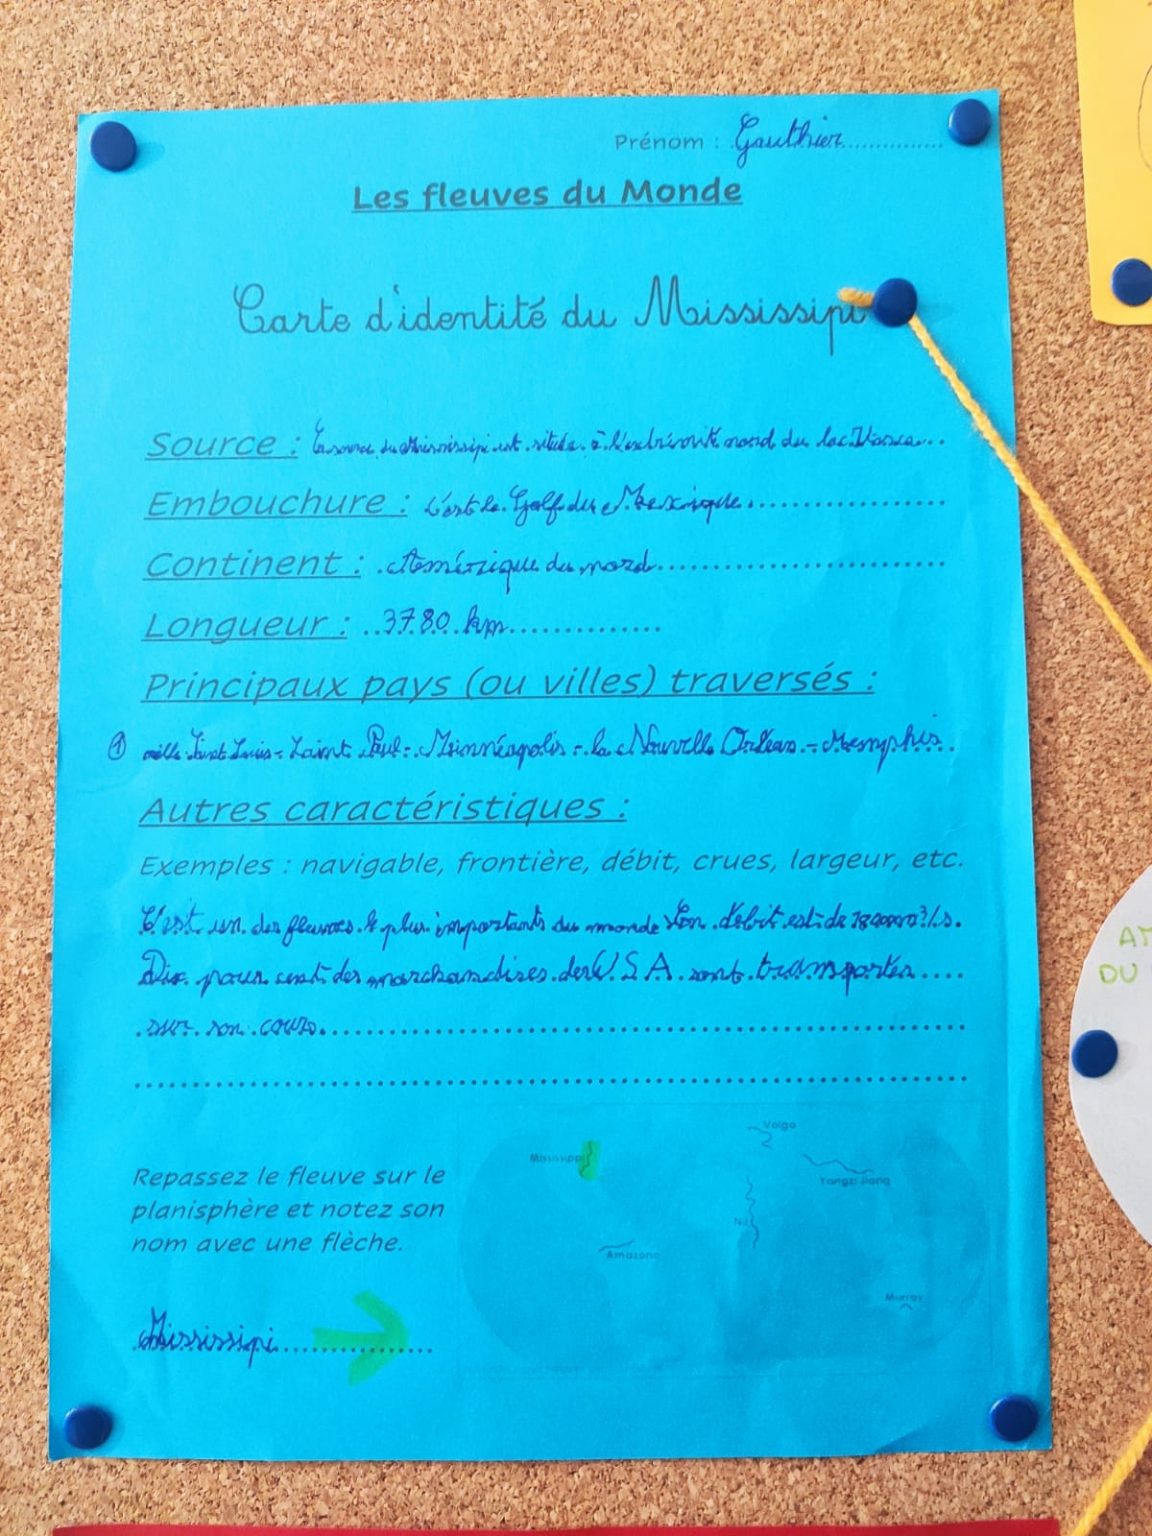 Prénom : Gauthier
Les fleuves du Monde
Carte d'identité du Mississipi
Source : La source du Mississipi est située à l'extrémité nord du lac Itasca
Embouchure : C'est le Golf du Mexique
Continent : Amérique du nord
Longueur : 3780 km
Principaux pays (ou villes) traversés :
① ville Saint Louis - Saint Paul - Minnéapolis - la Nouvelle Orléan - Memphis.
Autres caractéristiques :
Exemples : navigable, frontière, débit, crues, largeur, etc.
C'est un des fleuves le plus importants du monde Son débit est de 18000 m³/s.
Dix pour cent des marchandises des U.S.A. sont transportés
sur son cours.
Volga
Mississippi
Yangzi Jiang
Nil
Amazone
Murray
Repassez le fleuve sur le
planisphère et notez son
nom avec une flèche.
Mississipi
DU